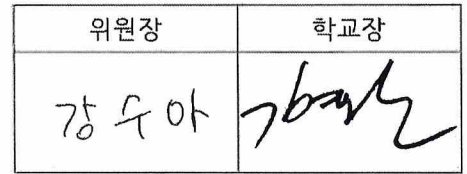 위원장 학교장
강수아